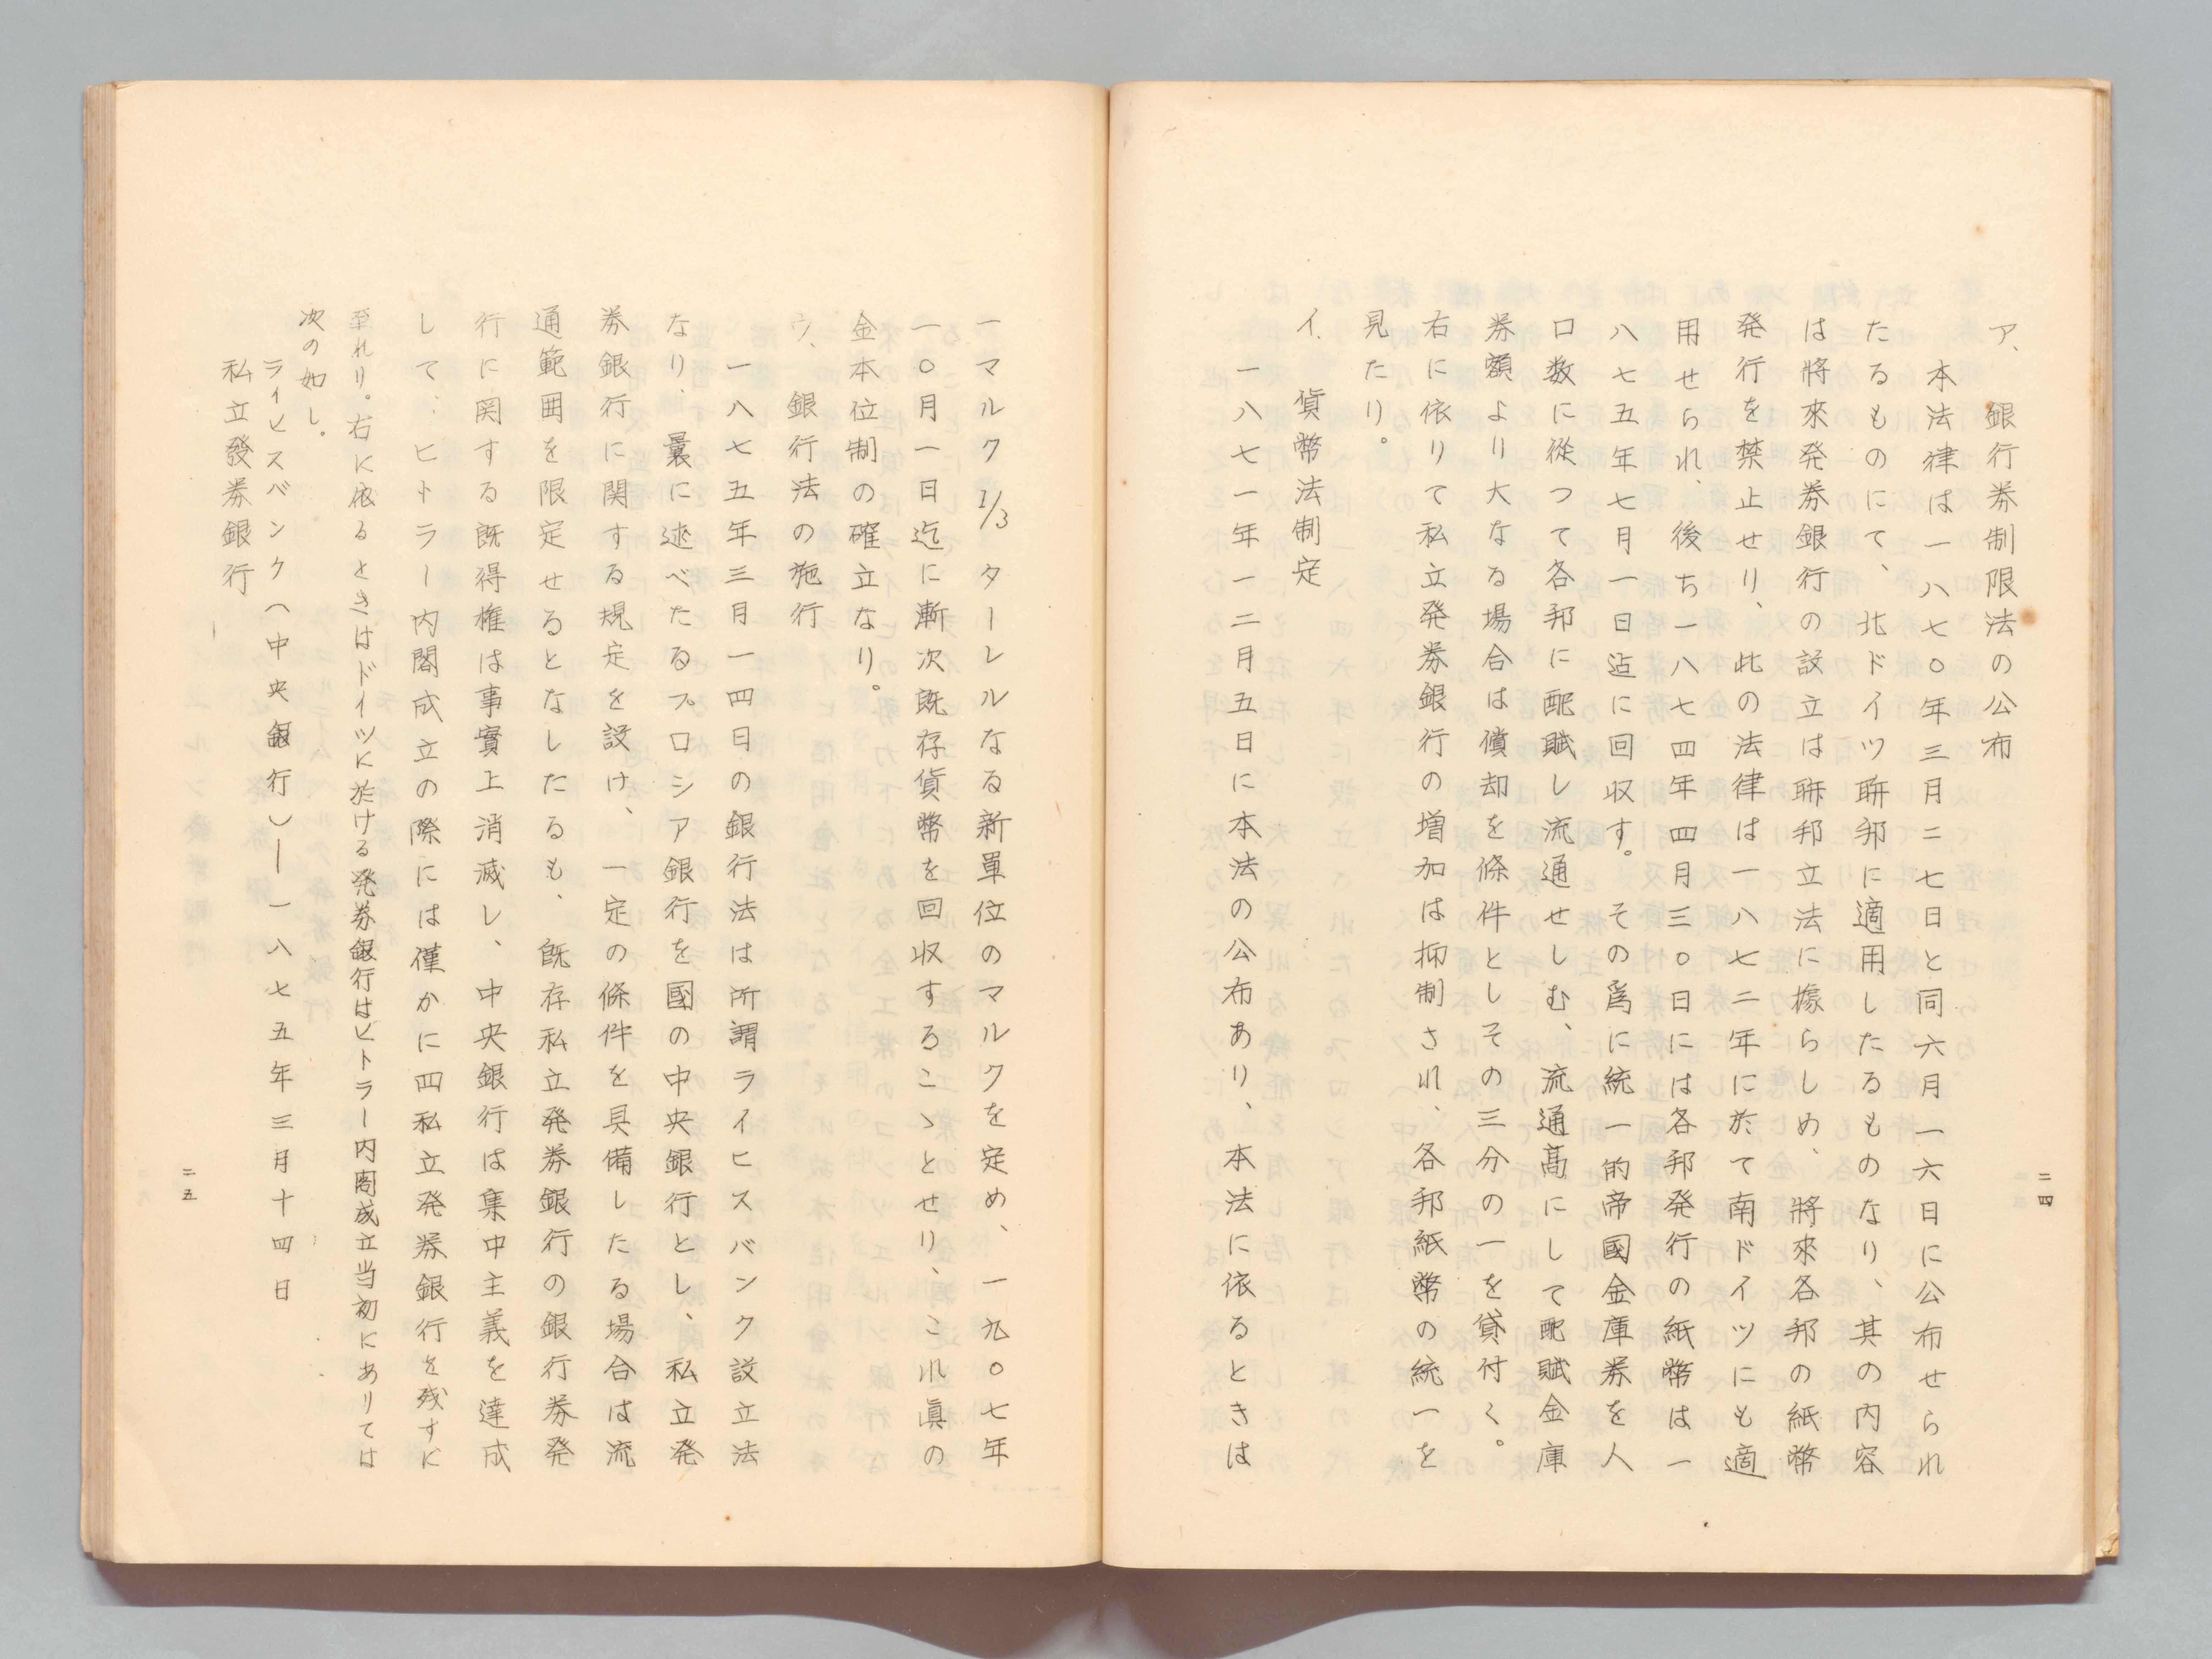 ア、銀行券制限法の公布
本法律は一八七〇年三月二七日と同六月一六日に公布せられ
たるものにて、北ドイツ聨邦に適用したるものなり、其の内容
は將來発券銀行の設立は聨邦立法に據らしめ、將來各邦の紙幣
発行を禁止せり、此の法律は一八七二年に於て南ドイツにも適
用せられ、後ち一八七四年四月三〇日には各邦発行の紙幣は一
八七五年七月一日迠に回収す。その爲に統一的帝國金庫券を人
口数に從つて各邦に配賦し流通せしむ、流通高にして配賦金庫
券額より大なる場合は償却を條件としその三分の一を貸付く。
右に依りて私立発券銀行の増加は抑制され、各邦紙幣の統一を
見たり。
イ、貨幣法制定
一八七一年一二月五日に本法の公布あり、本法に依るときは
二四
一マルク1/3ターレルなる新單位のマルクを定め、一九〇七年
一〇月一日迄に漸次既存貨幣を回収するこゝとせり、これ眞の
金本位制の確立なり。
ウ、銀行法の施行
一八七五年三月一四日の銀行法は所謂ライヒスバンク設立法
なり、曩に述べたるプロシア銀行を國の中央銀行とし、私立発
券銀行に関する規定を設け、一定の條件を具備したる場合は流
通範囲を限定せるとなしたるも、既存私立発券銀行の銀行券発
行に関する既得権は事實上消滅し、中央銀行は集中主義を達成
して、ヒトラー内閣成立の際には僅かに四私立発券銀行を残すに
至れり。右に依るときはドイツに於ける発券銀行はヒトラー内閣成立当初にありては
次の如し。
ライヒスバンク(中央銀行)ー一八七五年三月十四日
私立發券銀行
二五